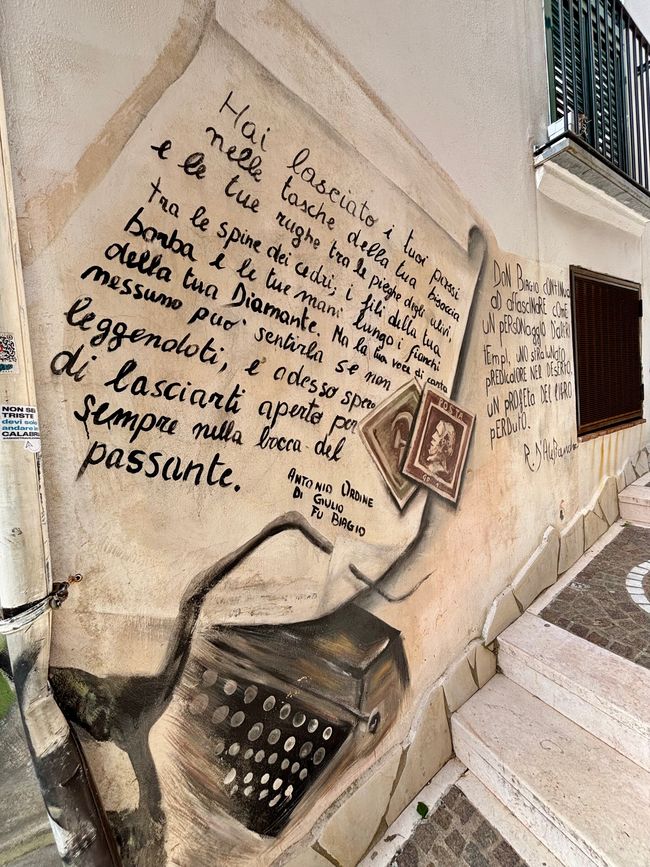 Hai lasciato i tuoi passi
nelle tasche della tua bisaccia
e le tue rughe tra le pieghe degli ulivi,
tra le spine dei cedri, i fili della tua
barba e le tue mani lungo i fianchi
della tua Diamante. Ma la tua voce di carta
nessuno può sentirla se non
leggendoti, e adesso spero
di lasciarti aperto per
sempre nella bocca del
passante.
ANTONIO ORDINE
DI GIULIO
FU BIAGIO
POSTE
DON BIAGIO CONTINUA
AD AFFASCINARE COME
UN PERSONAGGIO D'ALTRI
TEMPI, UNO STRALUNATO
PREDICATORE NEL DESERTO,
UN PROFETA DEL LIBRO
PERDUTO.
NON SEI
TRISTE
devi solo
andare in
CALABRIA